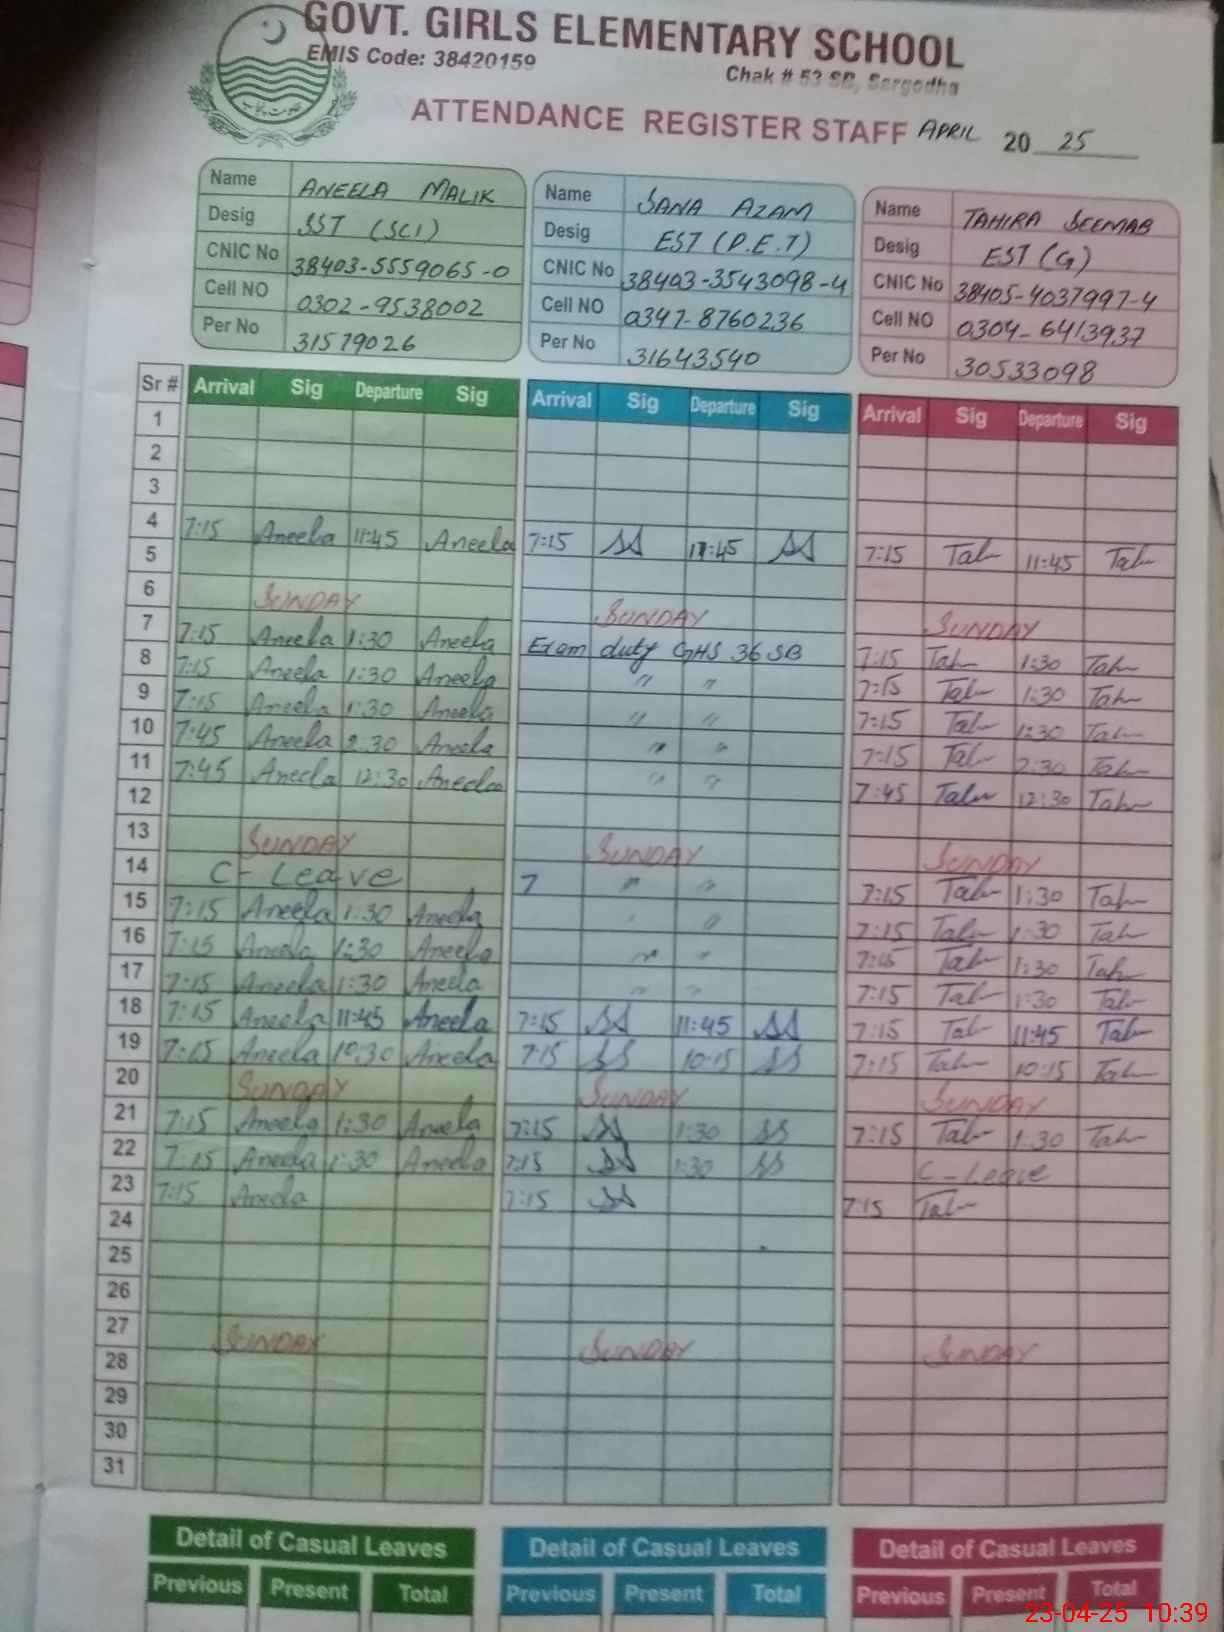 GOVT. GIRLS ELEMENTARY SCHOOL
EMIS Code: 38420159
Chak # 53 SB, Sargodha
ATTENDANCE REGISTER STAFF APRIL 2025
Name ANEELA MALIK Name SANA AZAM Name TAHIRA SEEMAB
Desig SST (SCI) Desig EST (P.E.T) Desig EST (G)
CNIC No 38403-5559065-0 CNIC No 38403-3543098-4 CNIC No 38405-4037997-4
Cell NO 0302-9538002 Cell NO 0347-8760236 Cell NO 0304-6413937
Per No 31579026 Per No 31643540 Per No 30533098
Sr # Arrival Sig Departure Sig Arrival Sig Departure Sig Arrival Sig Departure Sig
1
2
3
4
5 7:15 Aneela 11:45 Aneela 7:15 SS 11:45 SS 7:15 Tah 11:45 Tah
6 SUNDAY SUNDAY SUNDAY
7 7:15 Aneela 1:30 Aneela Exam duty GHS 36 SB 7:15 Tah 1:30 Tah
8 7:15 Aneela 1:30 Aneela " " 7:15 Tah 1:30 Tah
9 7:15 Aneela 1:30 Aneela " " 7:15 Tah 1:30 Tah
10 7:45 Aneela 2:30 Aneela " " 7:15 Tah 2:30 Tah
11 7:45 Aneela 12:30 Aneela " " 7:45 Tah 12:30 Tah
12
13 SUNDAY SUNDAY SUNDAY
14 C-Leave 7 " " 7:15 Tah 1:30 Tah
15 7:15 Aneela 1:30 Aneela " 7:15 Tah 1:30 Tah
16 7:15 Aneela 1:30 Aneela " " 7:15 Tah 1:30 Tah
17 7:15 Aneela 1:30 Aneela " " 7:15 Tah 1:30 Tah
18 7:15 Aneela 11:45 Aneela 7:15 SS 11:45 SS 7:15 Tah 11:45 Tah
19 7:15 Aneela 10:30 Aneela 7:15 SS 10:15 SS 7:15 Tah 10:15 Tah
20 SUNDAY SUNDAY SUNDAY
21 7:15 Aneela 1:30 Aneela 7:15 SS 1:30 SS 7:15 Tah 1:30 Tah
22 7:15 Aneela 1:30 Aneela 7:15 SS 1:30 SS C-Leave
23 7:15 Aneela 7:15 SS 7:15 Tah
24
25
26
27 SUNDAY SUNDAY SUNDAY
28
29
30
31
Detail of Casual Leaves Detail of Casual Leaves Detail of Casual Leaves
Previous Present Total Previous Present Total Previous Present Total
23-04-25 10:39